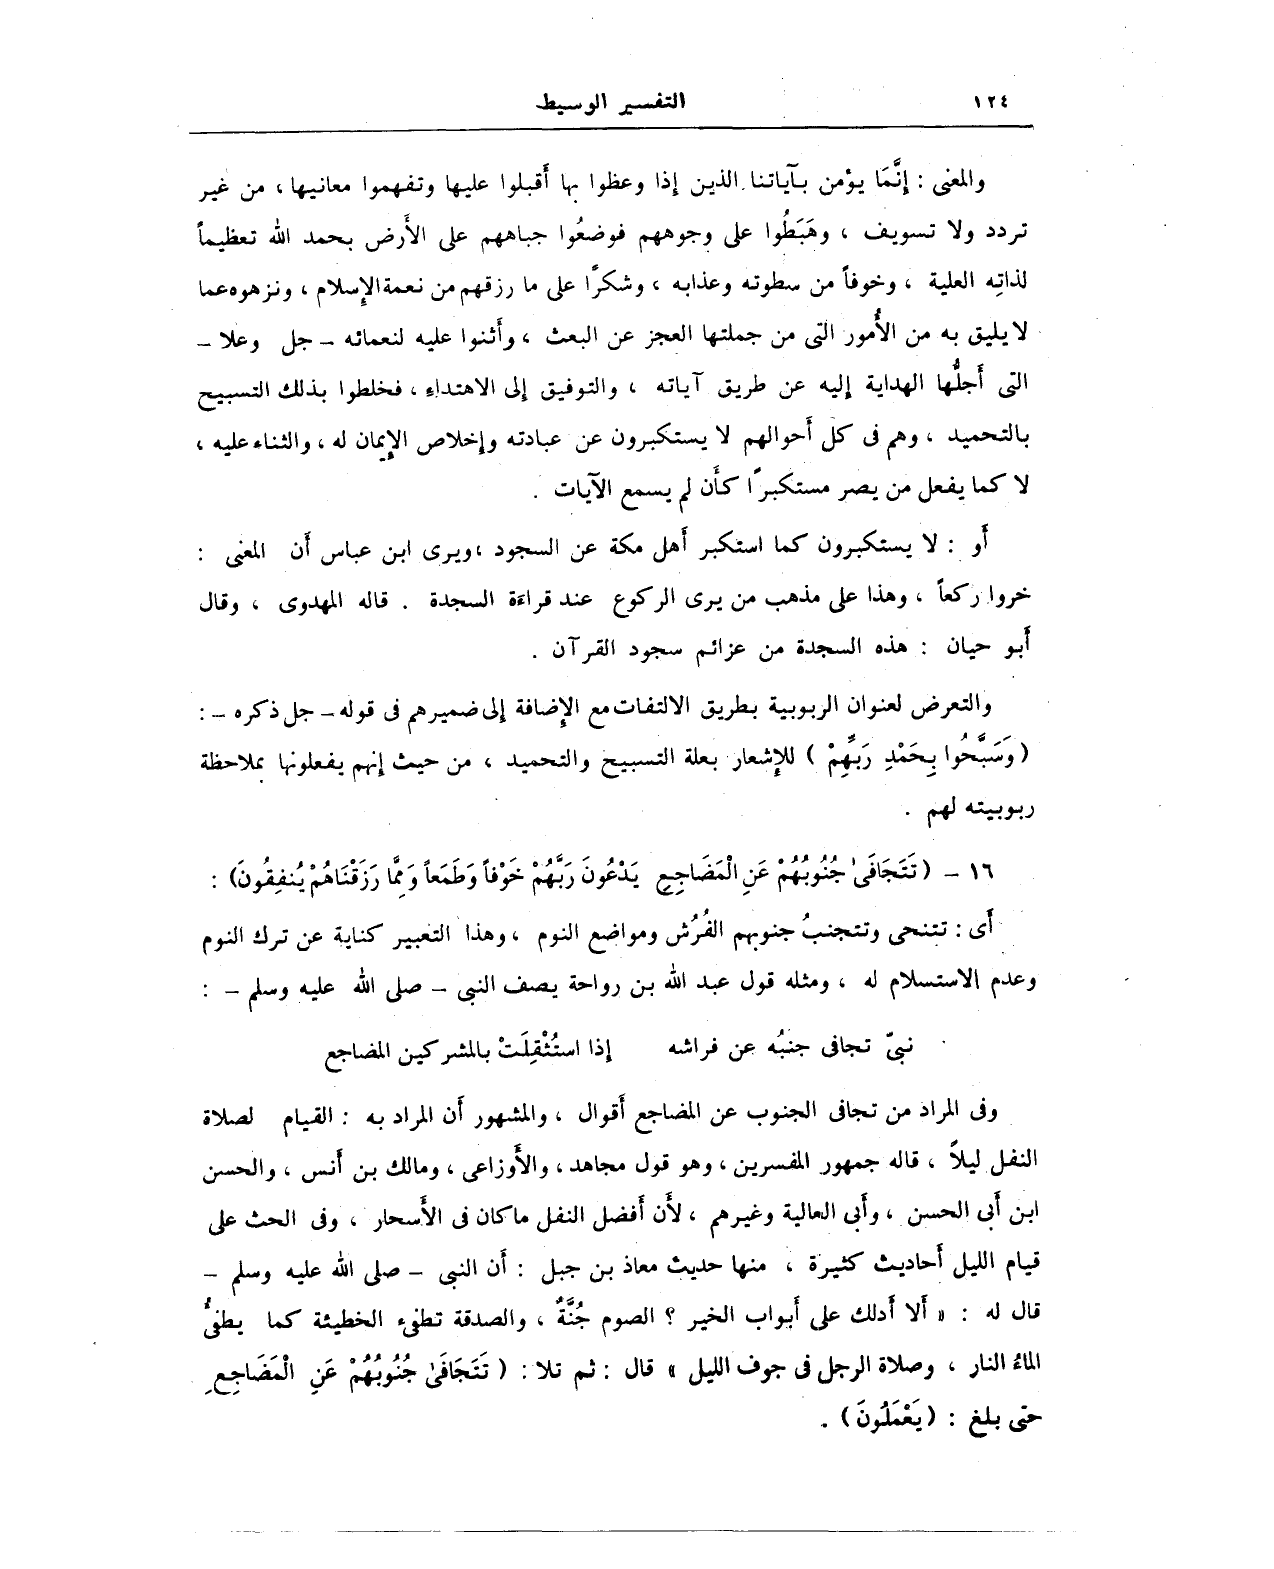 ١٢٤
التفسير الوسيط
والمعنى : إنَّمَا يؤمن بآياتنا الذين إذا وعظوا بها أَقبلوا عليها وتفهموا معانيها ، من غير
تردد ولا تسويف ، وهَبَطُوا على وجوههم فوضعُوا جباههم على الأَرض بحمد الله تعظيماً
لذاتِه العلية ، وخوفاً من سطوته وعذابه ، وشكرًا على ما رزقهم من نعمة الإِسلام ، ونزهوه عما
لا يليق به من الأُمور التى من جملتها العجز عن البعث ، وأَثنوا عليه لنعمائه - جل وعلا -
التى أَجلُّها الهداية إليه عن طريق آياته ، والتوفيق إلى الاهتداءِ ، فخلطوا بذلك التسبيح
بالتحميد ، وهم فى كل أَحوالهم لا يستكبرون عن عبادته وإخلاص الإِيمان له ، والثناء عليه ،
لا كما يفعل من يصر مستكبرًا كأَن لم يسمع الآيات .
أَو : لا يستكبرون كما استكبر أَهل مكة عن السجود ، ويرى ابن عباس أَن المعنى :
خروا ركعاً ، وهذا على مذهب من يرى الركوع عند قراءَة السجدة . قاله المهدوى ، وقال
أَبو حيان : هذه السجدة من عزائم سجود القرآن .
والتعرض لعنوان الربوبية بطريق الالتفات مع الإِضافة إلى ضميرهم فى قوله - جل ذكره - :
( وَسَبَّحُوا بِحَمْدِ رَبِّهِمْ ) للإِشعار بعلة التسبيح والتحميد ، من حيث إنهم يفعلونها بملاحظة
ربوبيته لهم .
١٦ - ( تَتَجَافَىٰ جُنُوبُهُمْ عَنِ الْمَضَاجِعِ يَدْعُونَ رَبَّهُمْ خَوْفاً وَطَمَعاً وَمِمَّا رَزَقْنَاهُمْ يُنفِقُونَ) :
أَى : تتنحى وتتجنبُ جنوبهم الفُرُش ومواضع النوم ، وهذا التعبير كناية عن ترك النوم
وعدم الاستسلام له ، ومثله قول عبد الله بن رواحة يصف النبى - صلى الله عليه وسلم - :
نبىّ تجافى جنبُه عن فراشه إذا استُثْقِلَتْ بالمشركين المضاجع
وفى المراد من تجافى الجنوب عن المضاجع أَقوال ، والمشهور أَن المراد به : القيام لصلاة
النفل ليلاً ، قاله جمهور المفسرين ، وهو قول مجاهد ، والأَوزاعى ، ومالك بن أَنس ، والحسن
ابن أَبى الحسن ، وأَبى العالية وغيرهم ، لأَن أَفضل النفل ما كان فى الأَسحار ، وفى الحث على
قيام الليل أَحاديث كثيرة ، منها حديث معاذ بن جبل : أَن النبى - صلى الله عليه وسلم -
قال له : « أَلا أَدلك على أَبواب الخير ؟ الصوم جُنَّةٌ ، والصدقة تطفىء الخطيئة كما يطفئُ
الماءُ النار ، وصلاة الرجل فى جوف الليل » قال : ثم تلا : ( تَتَجَافَىٰ جُنُوبُهُمْ عَنِ الْمَضَاجِعِ
حتى بلغ : ( يَعْمَلُونَ ) .